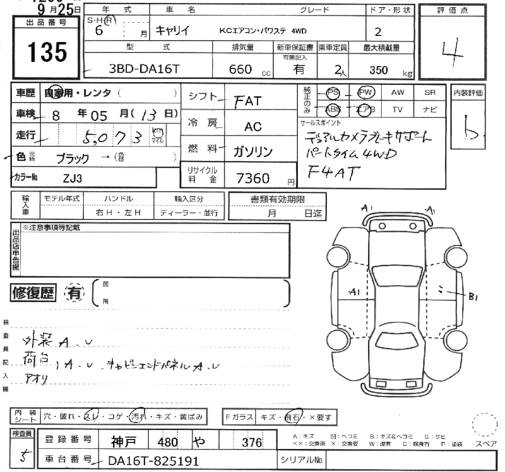 9月25日
出品番号
135
年式
車名
グレード
ドア・形状
評価点
S・H・R
6
月
キャリイ
KCエアコン・パワステ 4WD
2
4
型式
排気量
新車保証書
有無記入
乗車定員
最大積載量
3BD-DA16T
660 cc
有
2人
350 kg
車歴
自家用・レンタ ( )
車検
8 年 05 月 (13日)
走行
5,073 km
色
ブラック →( )
カラーNo
ZJ3
シフト
FAT
冷房
AC
燃料
ガソリン
リサイクル料金
7360円
純正のみ
PS
PW
AW
SR
ABS
エアB
TV
ナビ
セールスポイント
デュアルカメラブレーキサポート
パートタイム4WD
F4AT
内装評価
b
輸入車
モデル年式
ハンドル
輸入区分
右H・左H
ディーラー・並行
書類有効期限
月 日迄
出品店申告欄
※注意事項等記載
修復歴
有
箇所
検査員記入欄
外装 A.U
荷台, A.U.キャビンエンドパネル A.U
アオリ
A1
A1
A1
B1
内装シート
穴・破れ・スレ・コゲ・汚れ・キズ・黄ばみ
Fガラス
キズ・飛石・×要す
検査員
5
登録番号
神戸 480 や 376
車台番号
DA16T-825191
シリアルNo.
A:キズ
B:キズ&ヘコミ
スペア